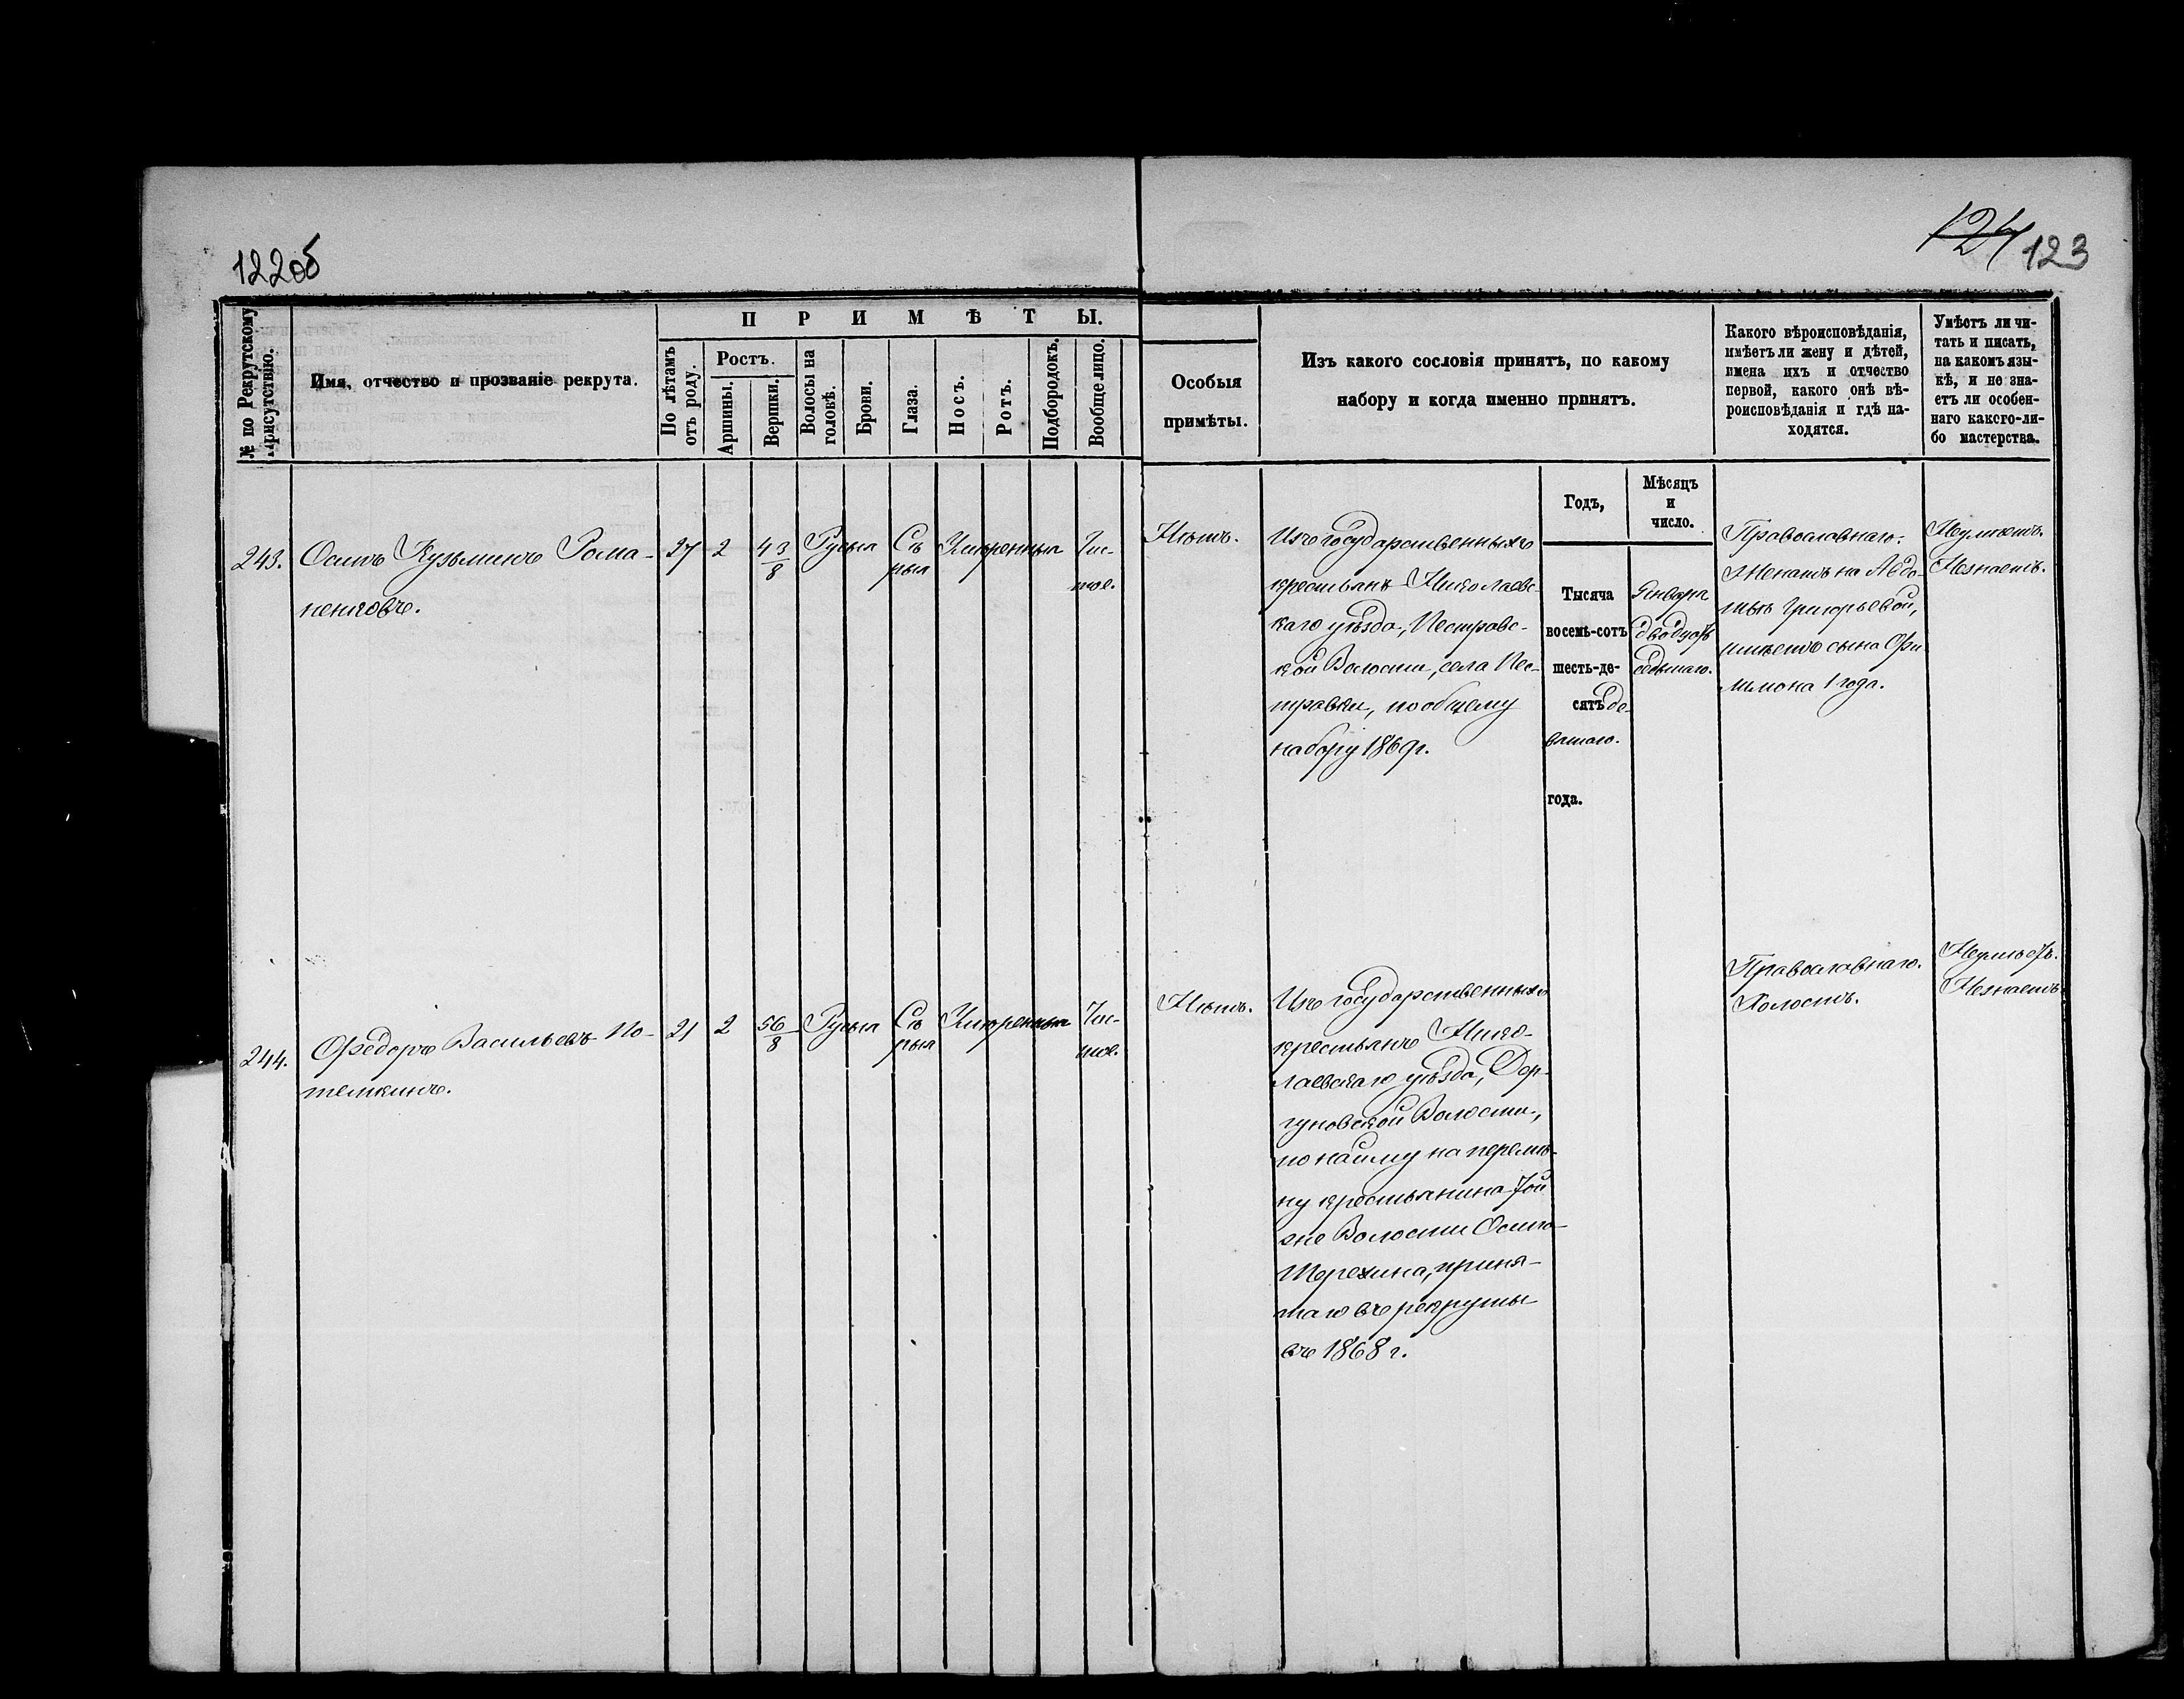 122об
124 123
№ по Рекрутскому Присутствію.
Имя, отчество и прозваніе рекрута.
ПРИМѢТЫ.
По лѣтамъ отъ роду.
Ростъ.
Аршины.
Вершки.
Волосы на головѣ.
Брови.
Глаза.
Носъ.
Ротъ.
Подбородокъ.
Вообще лицо.
Особыя
примѣты.
Изъ какого сословія принятъ, по какому
набору и когда именно принятъ.
Какого вѣроисповѣданія,
имѣетъ ли жену и дѣтей,
имена ихъ и отчество
первой, какого онѣ вѣ-
роисповѣданія и гдѣ на-
ходятся.
Умѣетъ ли чи-
тать и писать,
на какомъ язы-
кѣ, и не зна-
етъ ли особен-
наго какого-ли-
бо мастерства.
Годъ,
Мѣсяцъ
и
число.
243.
Осипъ Кузьминъ Рома-
ненковъ.
27
2
4 3/8
Русыя
Сѣ
рыя
Умѣренныя
Чис-
тое.
Нѣтъ.
Изъ государственныхъ
крестьянъ Николаевс-
каго уѣзда, Пестравс-
кой Волости, села Пес-
травки, по общему
набору 1869 г.
Тысяча
восемь-сотъ
шесть-де-
сятъ де-
вятаго.
года.
Января
двадцать
седьмаго.
Православнаго.
Женатъ на Авдо-
тьѣ Григорьевой,
имѣетъ сына Фи
лимона 1 года.
Неумѣетъ.
Незнаетъ.
244.
Федоръ Васильевъ По-
темкинъ.
21
2
5 6/8
Русыя
Сѣ
рыя
Умѣренныя
Чис-
тое.
Нѣтъ.
Изъ государственныхъ
крестьянъ Нико-
лаевскаго уѣзда, Дер-
гуновской Волости,
по найму на перемѣ-
ну крестьянина той
же Волости Осипа
Терехина, приня-
таго въ рекруты
въ 1868 г.
Православнаго.
Холостъ.
Неумѣетъ.
Незнаетъ